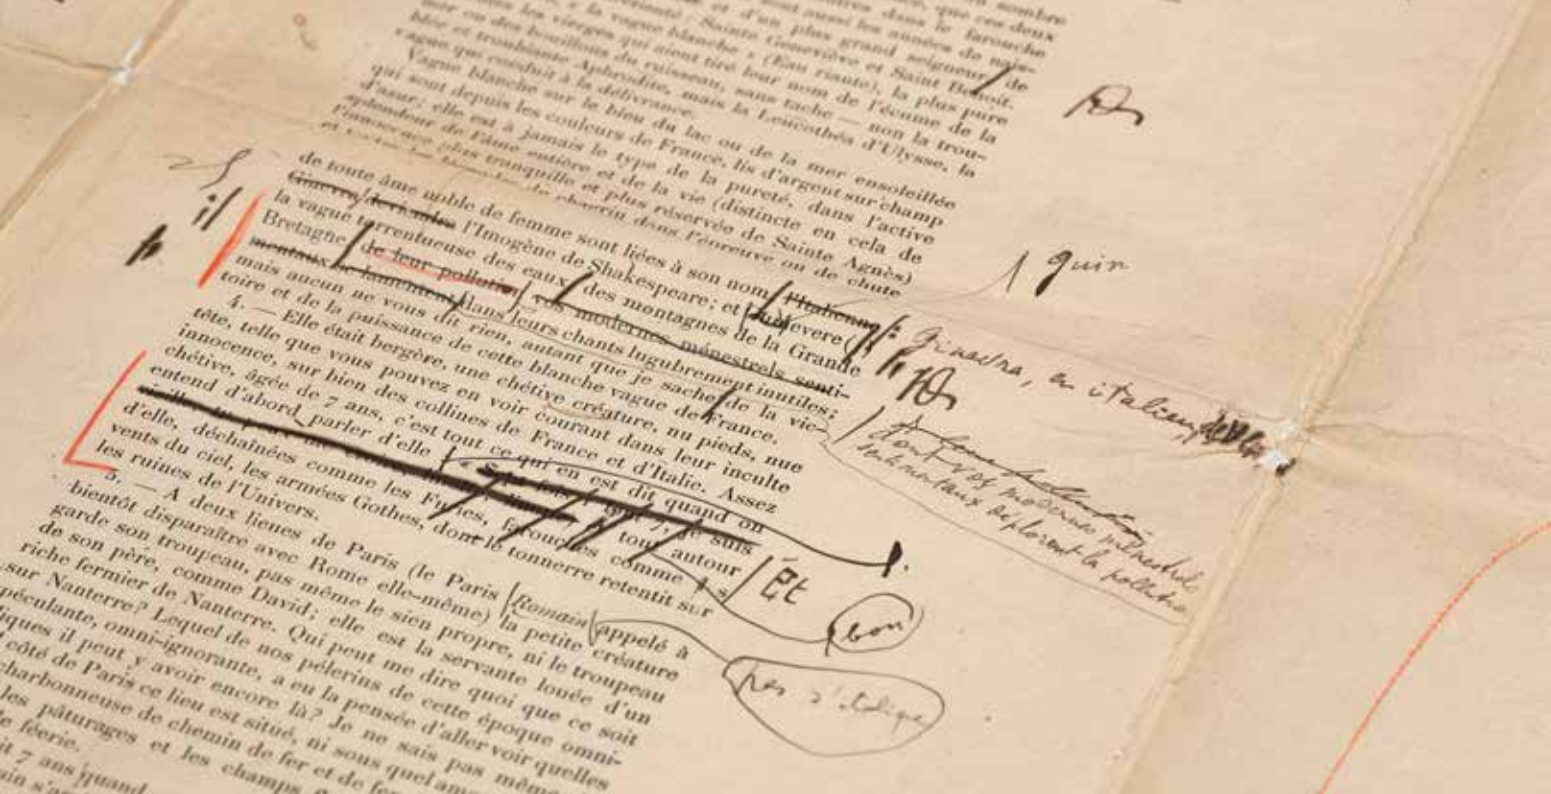 sombre
que ces deux
dans le farouche
sont aussi les années de nais-
et d'un plus grand seigneur de
Sainte Geneviève et Saint Benoît.
la vague blanche » (Eau riante), la plus pure
les vierges qui aient tiré leur nom de l'écume de la
mer ou des bouillons du ruisseau, sans tache — non la trou-
blée et troublante Aphrodite, mais la Leucothéa d'Ulysse, la
vague qui conduit à la délivrance.
Vague blanche sur le bleu du lac ou de la mer ensoleillée
qui sont depuis les couleurs de France, lis d'argent sur champ
d'azur; elle est à jamais le type de la pureté, dans l'active
splendeur de l'âme entière et de la vie (distincte en cela de
l'innocence plus tranquille et plus réservée de Sainte Agnès)
de chagrin dans l'épreuve ou de chute
de toute âme noble de femme sont liées à son nom l'Italienne
Ginevra devenue l'Imogène de Shakespeare; et Guinevere (
la vague torrentueuse des eaux des montagnes de la Grande
Bretagne de leur pollution vos modernes ménestrels senti-
mentaux se lamentent dans leurs chants lugubrement inutiles;
mais aucun ne vous dit rien, autant que je sache de la vic-
toire et de la puissance de cette blanche vague de France.
4. — Elle était bergère, une chétive créature, nu pieds, nue
tête, telle que vous pouvez en voir courant dans leur inculte
innocence, sur bien des collines de France et d'Italie. Assez
chétive, âgée de 7 ans, c'est tout ce qui en est dit quand on
entend d'abord parler d'elle je suis
tout autour
d'elle, déchaînées comme les Furies, farouches comme
vents du ciel, les armées Gothes, dont le tonnerre retentit sur
les ruines de l'Univers.
5. — A deux lieues de Paris (le Paris Romain appelé à
bientôt disparaître avec Rome elle-même) la petite créature
garde son troupeau, pas même le sien propre, ni le troupeau
de son père, comme David; elle est la servante louée d'un
riche fermier de Nanterre. Qui peut me dire quoi que ce soit
sur Nanterre? Lequel de nos pélerins de cette époque omni-
péculante, omni-ignorante, a eu la pensée d'aller voir quelles
iques il peut y avoir encore là? Je ne sais pas même
côté de Paris ce lieu est situé, ni sous quel
charbonneuse de chemin de fer et de fer
les pâturages et les champs
féerie.
it 7 ans quand
il
guin
Ginevra, en italien,
dont vos modernes ménestrels
sentimentaux déplorent la pollution
Et
bon
pas d'italique